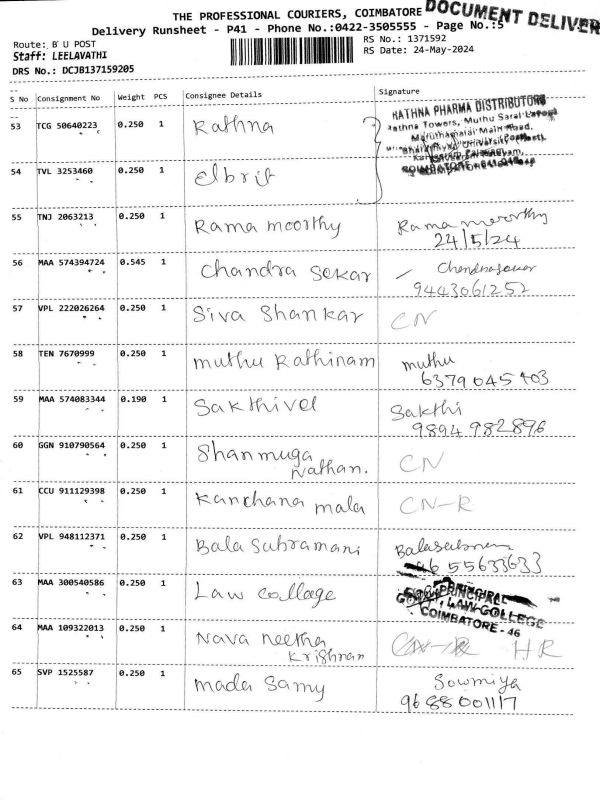 THE PROFESSIONAL COURIERS, COIMBATORE
DOCUMENT DELIVER
Delivery Runsheet - P41 - Phone No.:0422-3505555 - Page No.:5
Route: B U POST
RS No.: 1371592
Staff: LEELAVATHI
RS Date: 24-May-2024
DRS No.: DCJB137159205
S No Consignment No Weight PCS Consignee Details Signature
53 TCG 50640223 0.250 1 Rathna
RATHNA PHARMA DISTRIBUTORS
Rathna Towers, Muthu Sarai
Maruthamalai Main Road,
54 TVL 3253460 0.250 1 elbrit
COIMBATORE
55 TNJ 2063213 0.250 1 Rama moorthy Rama moorthy
24/5/24
56 MAA 574394724 0.545 1 Chandra Sekar Chandrasekar
9443061252
57 VPL 222026264 0.250 1 Siva Shankar CN
58 TEN 7670999 0.250 1 muthu Rathinam muthu
6379045403
59 MAA 574083344 0.190 1 Sakthivel Sakthi
9894 982896
60 GGN 910790564 0.250 1 Shanmuga
Nathan. CN
61 CCU 911129398 0.250 1 Kanchana mala CN-R
62 VPL 948112371 0.250 1 Bala Subramani
55633633
63 MAA 300540586 0.250 1 Law collage
PRINCIPAL
LAW COLLEGE
COIMBATORE - 46
64 MAA 109322013 0.250 1 Nava neetha
Krishnan HR
65 SVP 1525587 0.250 1 mada Samy Sowmiya
9688001117